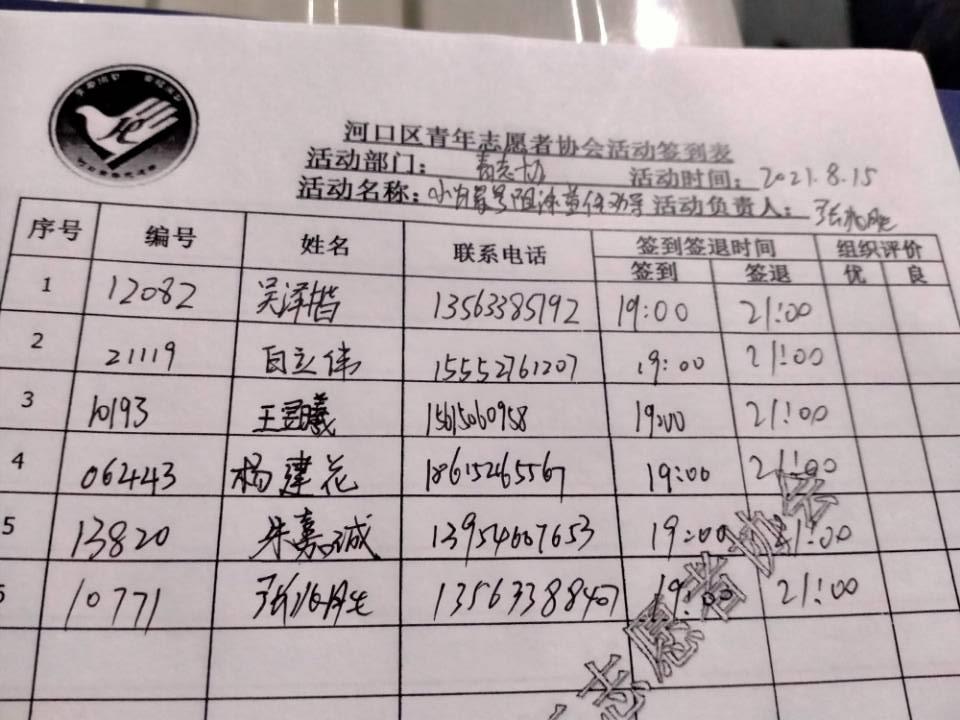 河口区青年志愿者协会活动签到表
活动部门： 青志协 活动时间：2021.8.15
活动名称： 活动负责人：
序号 编号 姓名 联系电话 签到签退时间 组织评价
签到 签退 优 良
1 12082 吴泽楷 13563385192 19:00 21:00
2 21119 白立伟 15552761207 19:00 21:00
3 10193 王昱曦 15615060958 19:00 21:00
4 062443 杨建花 18615265567 19:00 21:00
5 13820 朱嘉诚 13954607653 19:00 21:00
10771 13563388407 19:00 21:00
志愿者协会